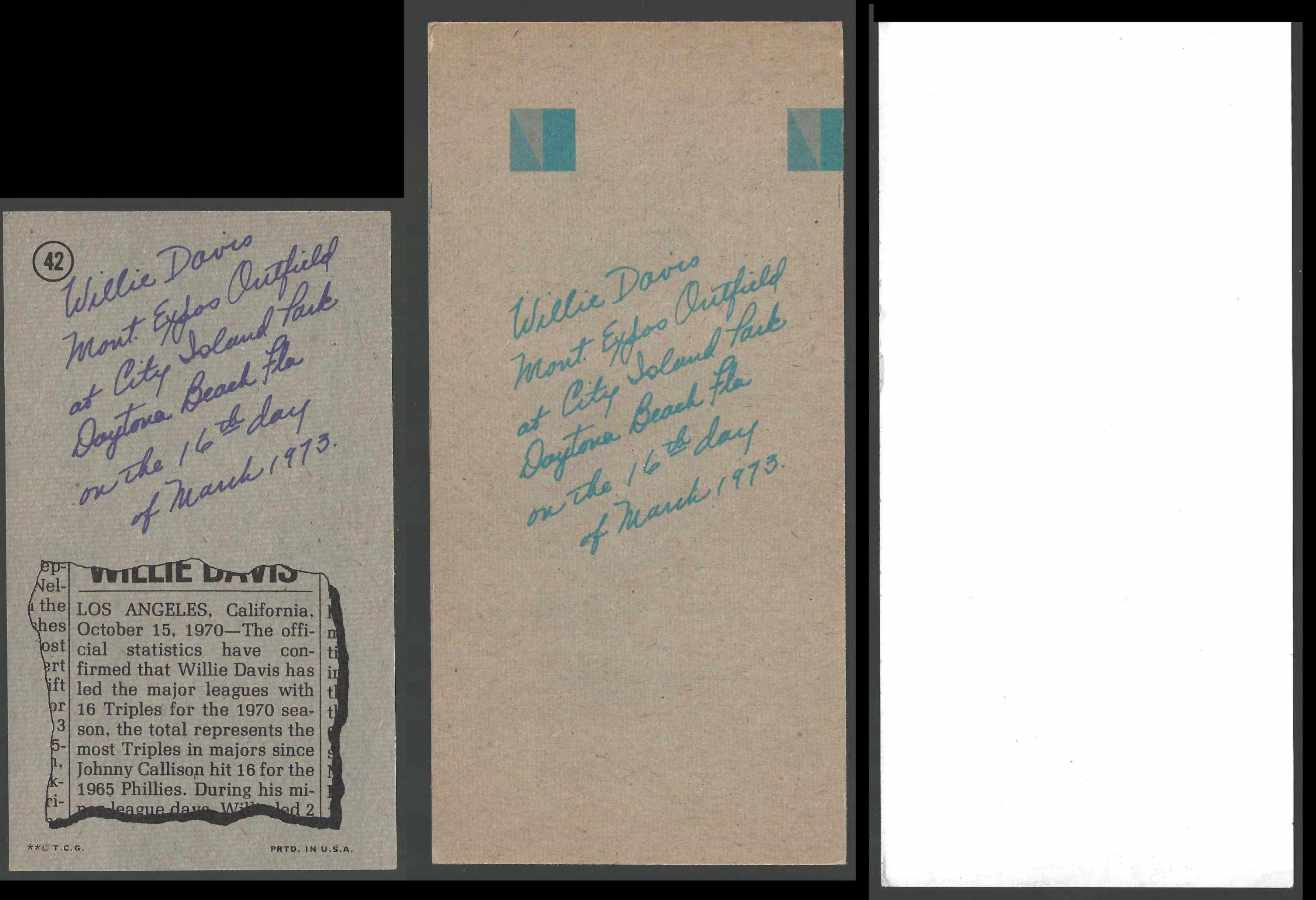 42
Willie Davis
Mont. Expos Outfield
at City Island Park
Daytona Beach Fla
on the 16th day
of March 1973.
WILLIE DAVIS
LOS ANGELES, California,
October 15, 1970—The offi-
cial statistics have con-
firmed that Willie Davis has
led the major leagues with
16 Triples for the 1970 sea-
son, the total represents the
most Triples in majors since
Johnny Callison hit 16 for the
1965 Phillies. During his mi-
nor league days, Willie led 2
ep-
Nel-
the
hes
ost
ert
ift
or
3
5-
k-
ri-
**© T.C.G.
PRTD. IN U.S.A.
Willie Davis
Mont. Expos Outfield
at City Island Park
Daytona Beach Fla
on the 16th day
of March 1973.